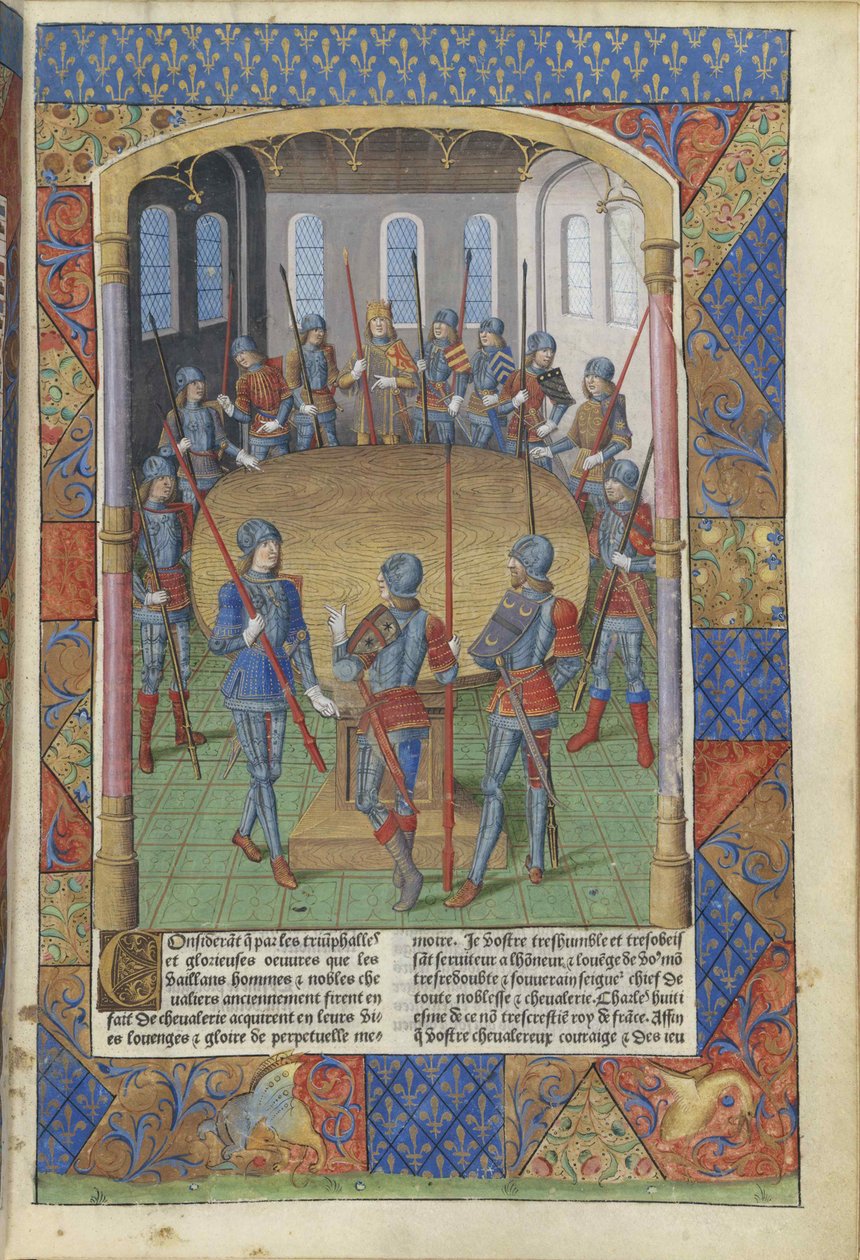 Considerāt q̄ par les triūphalles
et glorieuses oeuures que les
vaillans hommes ⁊ nobles che
ualiers anciennement firent en
fait de cheualerie acquirent en leurs vi⸗
es louenges ⁊ gloire de perpetuelle me⸗
moire. Je vostre treshumble et tresobeis
sāt seruiteur a lhōneur ⁊ louēge de vo⁹ mō
tresredoubte ⁊ souuerain seigne² chief de
toute noblesse ⁊ cheualerie. Charles huiti
esme de ce nō trescrestiē roy de frāce. Affin
q̄ vostre cheualereux couraige ⁊ des ieu